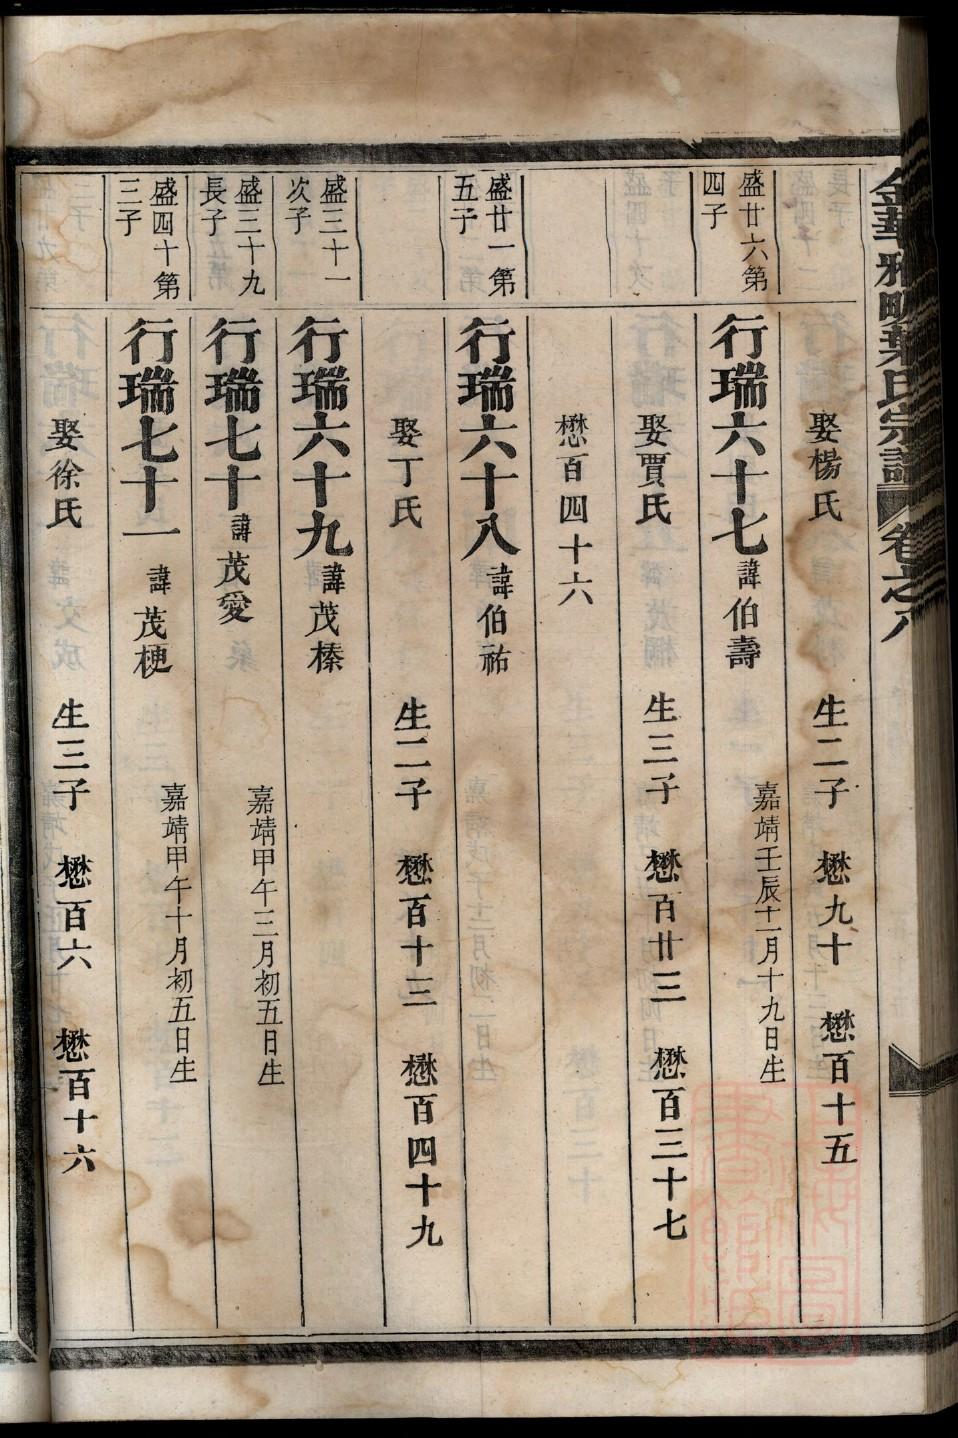 金華雅畈葉氏宗譜 卷之八
娶楊氏 生二子 懋九十 懋百十五
盛廿六第
四子
行瑞六十七 諱伯壽 嘉靖壬辰十二月十九日生
娶賈氏 生三子 懋百廿三 懋百三十七
懋百四十六
盛廿一第
五子
行瑞六十八 諱伯祐
娶丁氏 生二子 懋百十三 懋百四十九
盛三十一
次子
行瑞六十九 諱茂榛
盛三十九
長子
行瑞七十 諱茂愛 嘉靖甲午三月初五日生
盛四十第
三子
行瑞七十一 諱茂梗 嘉靖甲午十月初五日生
娶徐氏 生三子 懋百六 懋百十六